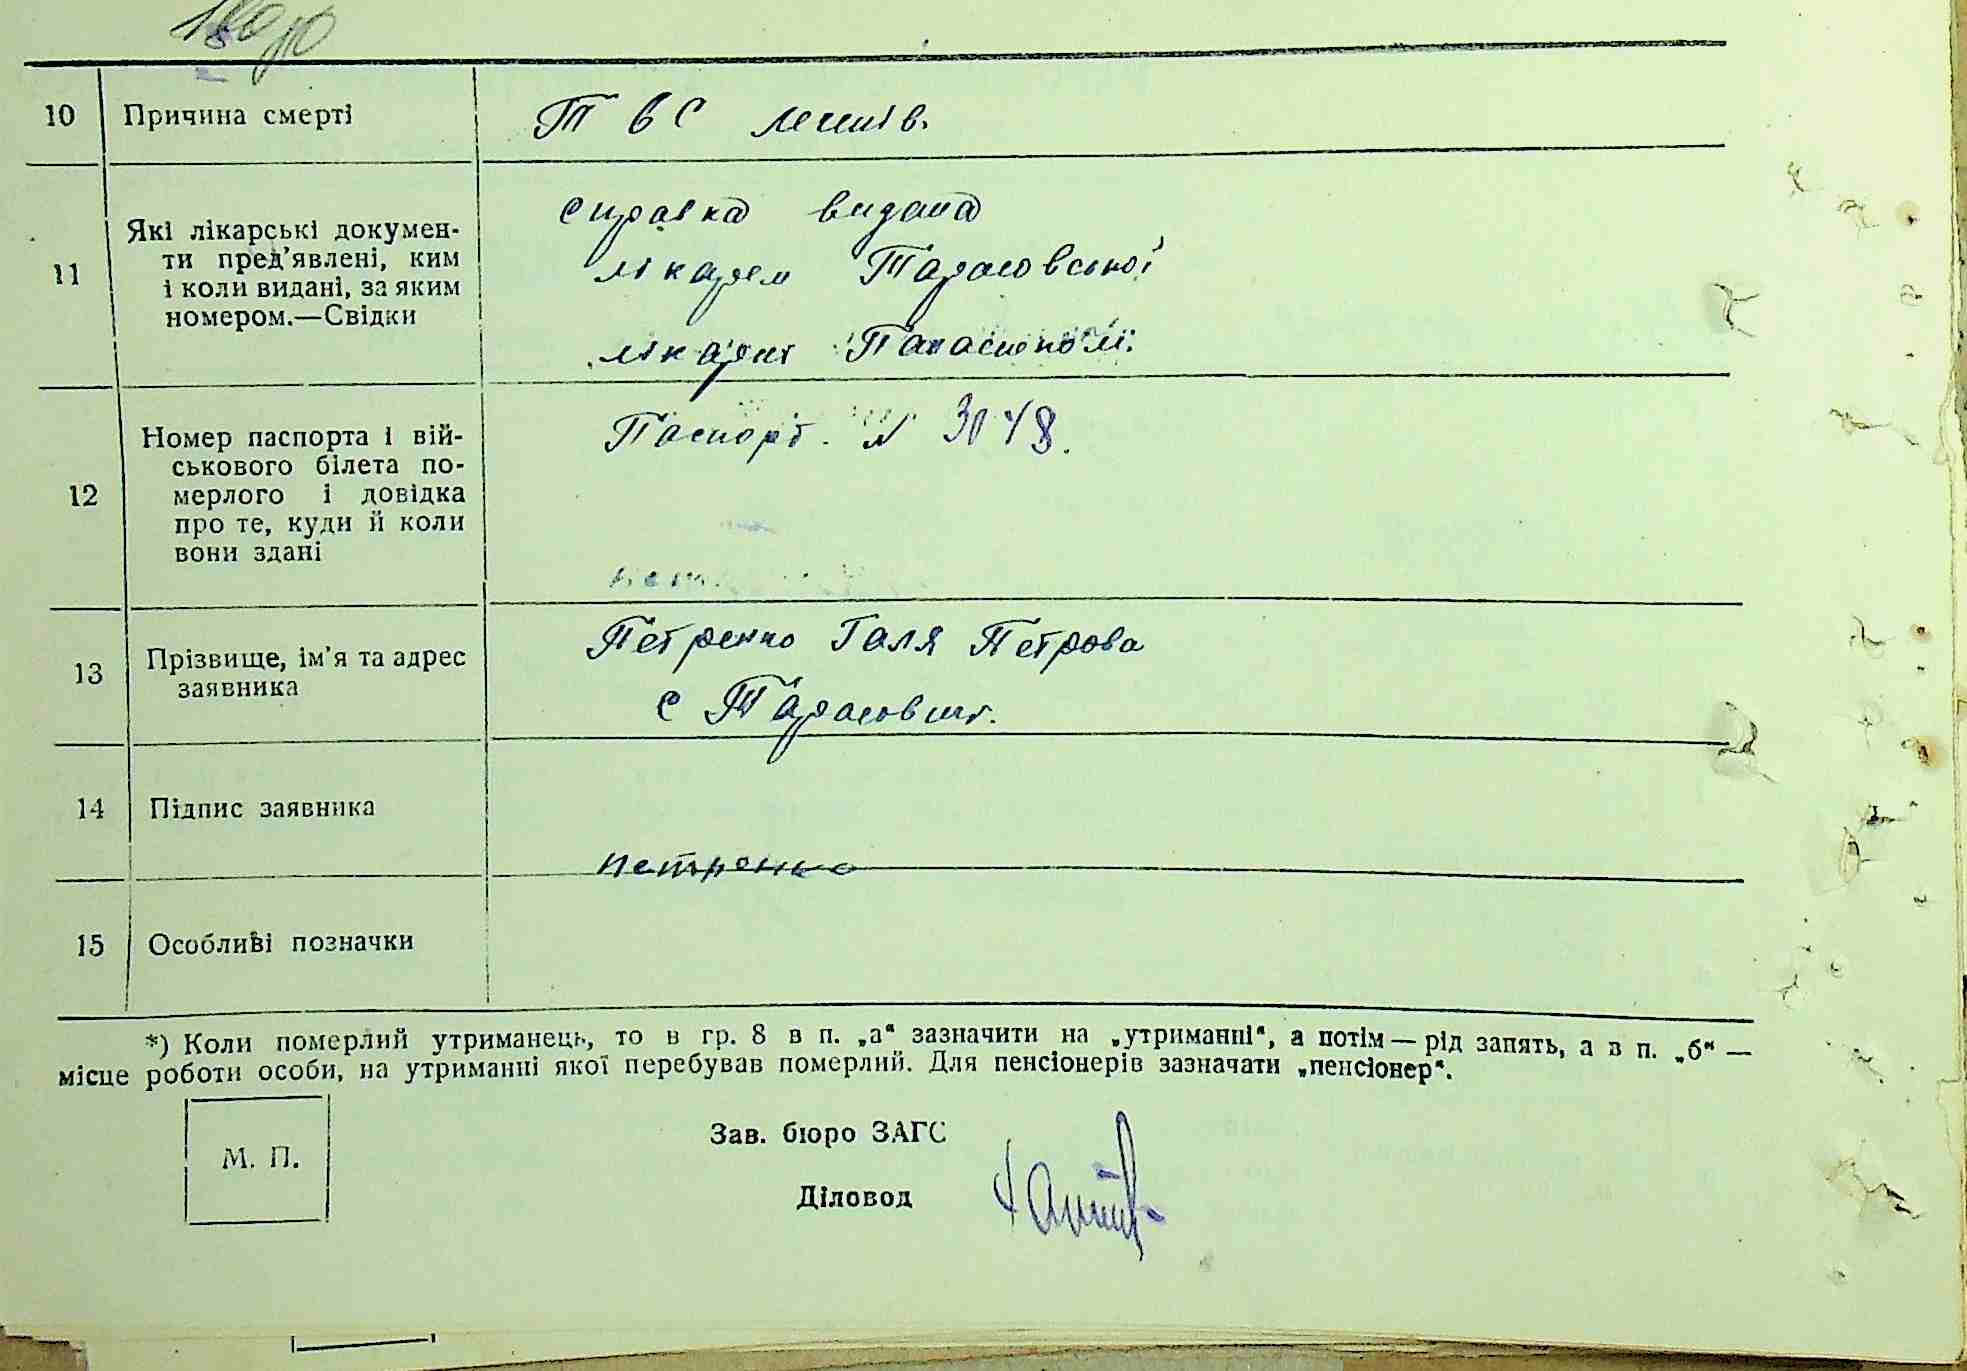 10 Причина смерті Т В С легнів.
11 Які лікарські докумен-
ти пред’явлені, ким
і коли видані, за яким
номером.—Свідки
справка видана
лікарем Тарасовської
лікарні
12 Номер паспорта і вій-
ськового білета по-
мерлого і довідка
про те, куди й коли
вони здані
Паспорт. N 3048.
13 Прізвище, ім’я та адрес
заявника
Петренко Галя Петрова
с Тарасовка.
14 Підпис заявника
петренко
15 Особливі позначки
*) Коли померлий утриманець, то в гр. 8 в п. „а“ зазначити на „утриманні“, а потім — рід занять, а в п. „б“ —
місце роботи особи, на утриманні якої перебував померлий. Для пенсіонерів зазначати „пенсіонер“.
М. П.
Зав. бюро ЗАГС
Діловод